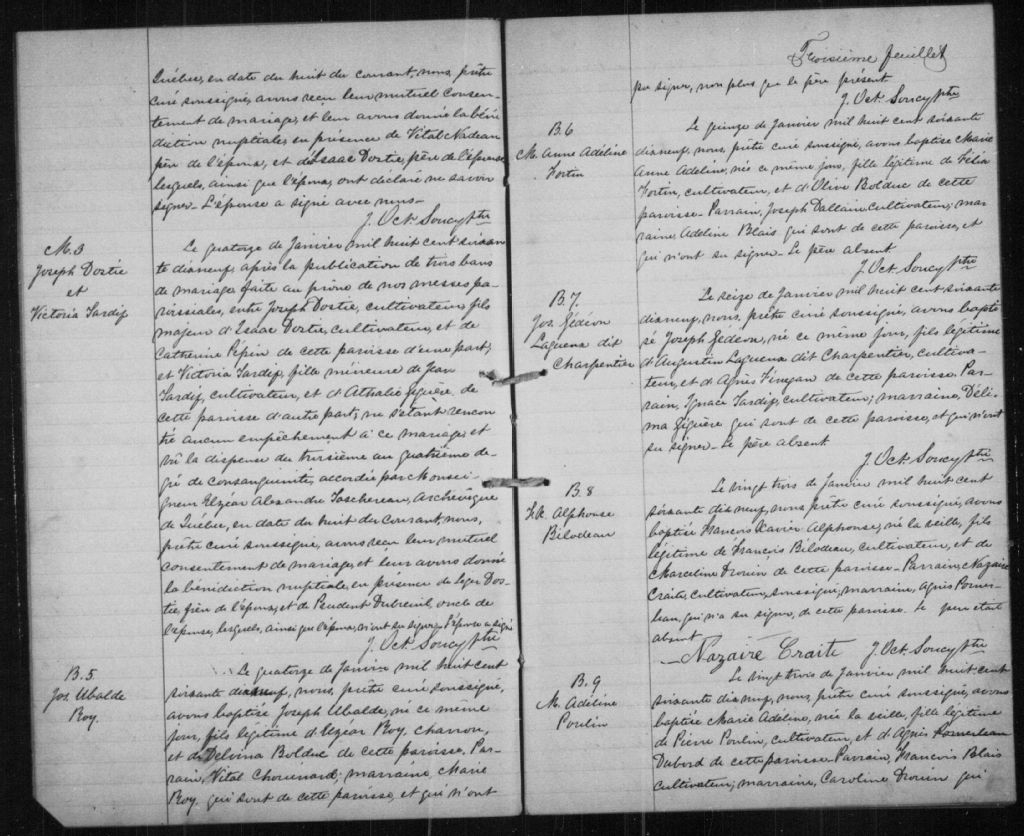 Québec, en date du huit du courant, nous, prêtre
curé soussigné, avons reçu leur mutuel consen-
tement de mariage, et leur avons donné la béné
diction nuptiale en présence de Vital Nadeau
père de l'époux, et d'Isaac Dostie, père de l'épouse
lesquels, ainsi que l'époux, ont déclaré ne savoir
signer. L'épouse a signé avec nous-
J. Oct. Soucy Ptre
M. 3
Joseph Dostie
et
Victoria Tardif
Le quatorze de Janvier mil huit cent soixan
te dix neuf, après la publication de trois bans
de mariage faite au prône de nos messes pa-
roissiales, entre Joseph Dostie, cultivateur, fils
majeur d'Isaac Dostie, cultivateur, et de
Catherine Pépin de cette paroisse d'une part;
et Victoria Tardif, fille mineure de Jean
Tardif, cultivateur, et d'Athalie Giguère de
cette paroisse d'autre part; ne s'étant rencon
tré aucun empêchement à ce mariage, et
vû la dispense du troisième au quatrième de-
gré de consanguinité, accordée par Monsei-
gneur Elzéar Alexandre Taschereau, Archevêque
de Québec, en date du huit du courant, nous,
prêtre curé soussigné, avons reçu leur mutuel
consentement de mariage, et leur avons donné
la bénédiction nuptiale, en présence de Léger Dos-
tie, frère de l'époux, et de Prudent Dubreuil, oncle de
l'épouse, lesquels, ainsi que l'époux, n'ont su signer. L'épouse a signé
J. Oct. Soucy Ptre
B. 5
Jos. Ubalde
Roy.
Le quatorze de Janvier mil huit cent
soixante dix neuf, nous, prêtre curé soussigné,
avons baptisé Joseph Ubalde, né ce même
jour, fils légitime d'Elzéar Roy, charron,
et de Delvina Bolduc de cette paroisse. Par-
rain, Vital Chouinard; marraine, Marie
Roy, qui sont de cette paroisse, et qui n'ont
Troisième feuillet
pu signer, non plus que le père présent
J. Oct. Soucy Ptre
B. 6
M. Anne Adéline
Fortin
Le quinze de Janvier mil huit cent soixante
dix neuf, nous, prêtre curé soussigné, avons baptisé Marie
Anne Adeline, née ce même jour, fille légitime de Félix
Fortin, cultivateur, et d'Olive Bolduc de cette
paroisse. Parrain, Joseph Dallain cultivateur; mar
raine, Adeline Blais qui sont de cette paroisse, et
qui n'ont su signer. Le père absent
J. Oct. Soucy Ptre
B. 7.
Jos. Gédéon
Laguena dit
Charpentier
Le seize de Janvier mil huit cent soixante
dix neuf, nous, prêtre curé soussigné, avons bapti
sé Joseph Gédéon, né ce même jour, fils légitime
d'Augustin Laguena dit Charpentier, cultiva-
teur, et d'Agnès Finegan de cette paroisse. Par-
rain, Ignace Tardif, cultivateur; marraine, Déli-
ma Giguère qui sont de cette paroisse, et qui n'ont
su signer. Le père absent
J. Oct. Soucy Ptre
B. 8
F.X. Alphonse
Bilodeau
Le vingt trois de Janvier mil huit cent
soixante dix neuf, nous prêtre curé soussigné, avons
baptisé François Xavier Alphonse, né la veille, fils
légitime de François Bilodeau, cultivateur, et de
Marceline Drouin de cette paroisse. Parrain, Nazaire
Craite, cultivateur, soussigné; marraine, Agnès Pomer-
leau, qui n'a su signer, de cette paroisse. Le père était
absent
Nazaire Craite J. Oct. Soucy Ptre
B. 9
M. Adéline
Poulin
Le vingt trois de Janvier mil huit cent
soixante dix neuf, nous, prêtre curé soussigné, avons
baptisé Marie Adéline, née la veille, fille légitime
de Pierre Poulin, cultivateur, et d'Agnès Pomerleau
Dubord de cette paroisse. Parrain, François Blais
cultivateur; marraine, Caroline Drouin qui